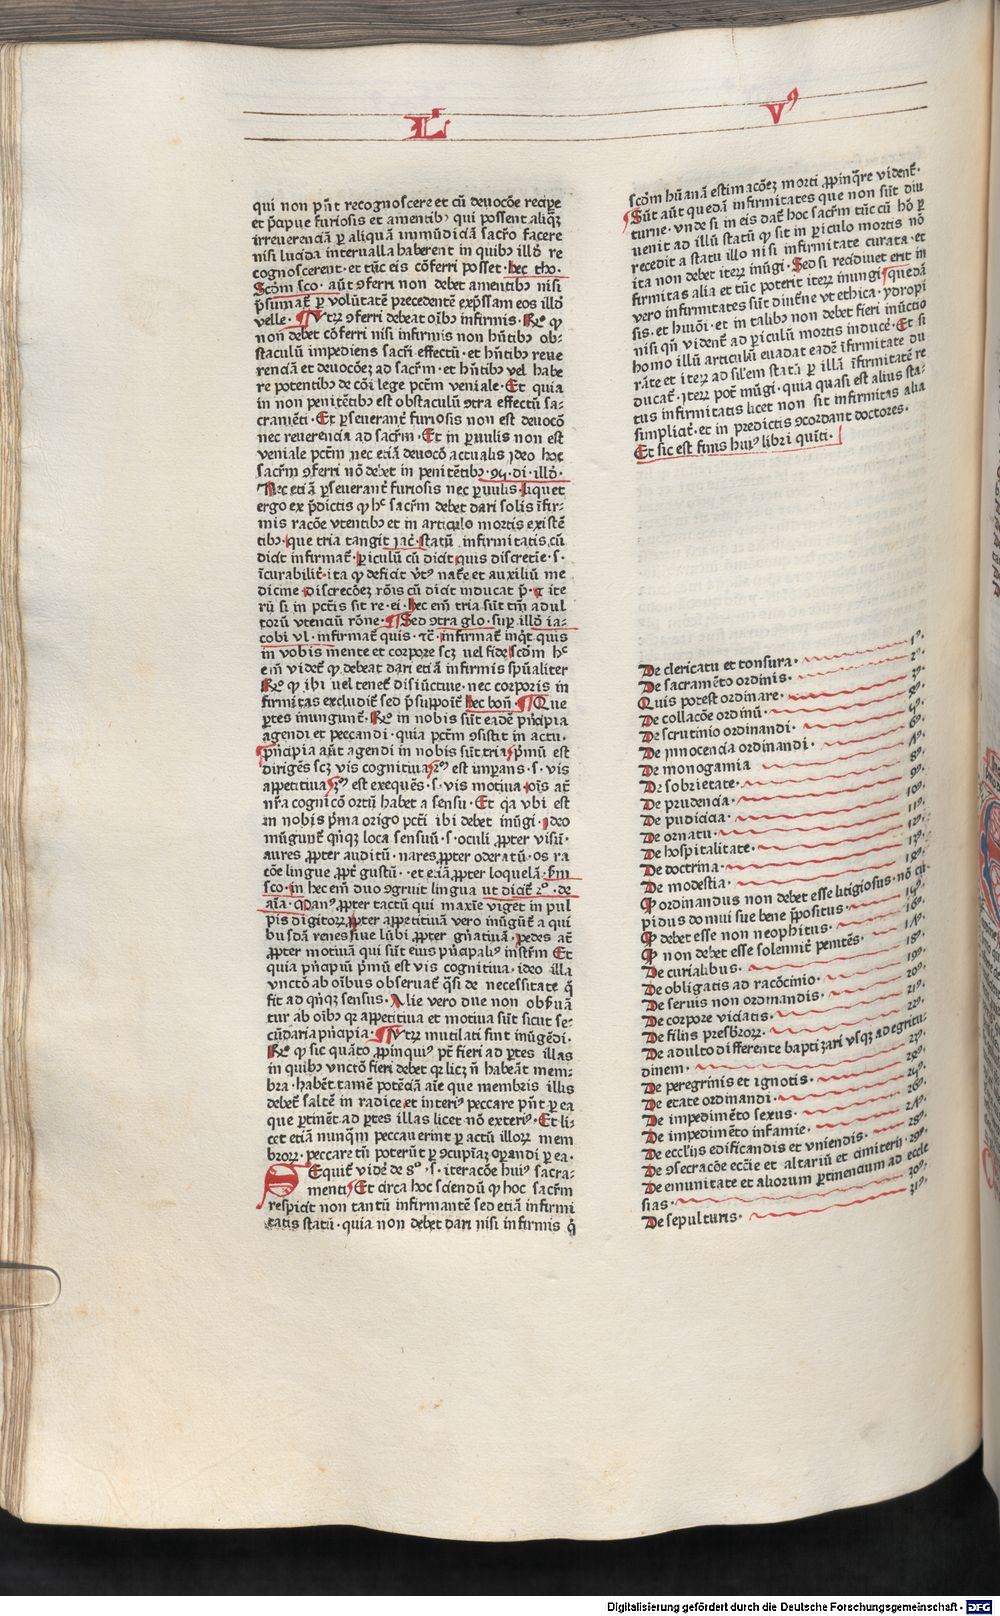 L V⁹
qui non pn̄t recognoscere et cū deuocōe recipe
et p̄cipue furiosis et amentibꝫ qui possent aliqꝫ
irreuerenciā ꝑ aliquā immūdiciā sacrō facere
nisi lucida interualla haberent in quibꝫ illd̄ re
cognoscerent · et tūc eis cōferri posset · hec tho.
Scd̄m sco · aūt ꝯferri non debet amentibꝫ nisi
p̄sumat̄ ꝑ volūtatē precedentē exp̄ssam eos illd̄
velle · ¶ Vtꝝ ꝯferri debeat oībꝫ infirmis · Rō ꝙ
non debet cōferri nisi infirmis non hn̄tibꝫ ob⸗
staculū impediens sacr̄i effectū · et hn̄tibꝫ reue
renciā et deuocōeꝫ ad sacr̄m · et hn̄tibꝫ vel habe
re potentibꝫ de cōi lege pctm̄ veniale · Et quia
in non penitētibꝫ est obstaculū ꝯtra effectū sa⸗
cramēti · Et ꝑseuerant̄ furiosis non est deuocō
nec reuerencia ad sacr̄m · Et in ꝑuulis non est
veniale pctm̄ nec eciā deuocō actualis ideo hoc
sacr̄m ꝯferri nō debet in penitētibꝫ · di · illō ·
Nec etiā ꝑseuerant̄ furiosis nec ꝑuulis · liquet
ergo ex p̄dictis ꝙ hᶜ sacr̄m debet dari solis īfir⸗
mis racōe vtentibꝫ et in articulo mortis existē
tibꝫ · que tria tangit iac̄ · statū infirmitatis cū
dicit infirmat̄ · ꝑiculū cū dicit quis discretie · s ·
īcurabilit̄ · ita ꝙ deficit v̄tꝰ nat̄e et auxiliū me
dicine · discrecōeꝫ rōis cū dicit inducat p̄ · ite
rū si in pctīs sit re · ei · hec em̄ tria sūt tm̄ adul
torū vtenciū rōne · ¶ Sed ꝯtra glo · suꝑ illd̄ ia⸗
cobi vl · infirmat̄ quis · ⁊c̄ · infirmat̄ inq̄t quis
in vobis mente et corpore scꝫ uel fide · scd̄m hᶜ
em̄ videt̄ ꝙ debeat dari etiā infirmis spūaliter
Rō ꝙ ibi uel tenet̄ disiūctiue · nec corporis in
firmitas excludit̄ sed p̄suppoit̄ hec bon̄ · ¶ Que
ꝑtes inungunt̄ · Rō in nobis sūt eadē pn̄cipia
agendi et peccandi · quia pctm̄ ꝯsistit in actu ·
pn̄cipia aūt agendi in nobis sūt tria · pͥmū est
dirigēs scꝫ vis cognitiua · 2ᵐ est imꝑans · s · vis
appetitiua · 3ᵐ est exequēs · s · vis motiua · oīs at̄
nr̄a cognicō ortū habet a sensu · Et qa vbi est
in nobis pͥma origo pctī ibi debet inūgi · ideo
mūgunt̄ qnqꝫ loca sensuū · s · oculi ꝓpter visū ·
aures ꝓpter auditū · nares ꝓpter odoratū · os ra
cōe lingue ꝓpt̄ gustū · et etiā ꝓpter loquelā · ẜm
sco · in hec em̄ duo ꝯgruit lingua ut dicit̄ 2° · de
aīa · Manꝰ ꝓpter tactū qui maxīe viget in pul
pis digitoꝝ ꝓpter appetitiuā vero inūgūt̄ a qui
busdā renes siue lūbi ꝓpter gn̄atiuā · pedes at̄
ꝓpter motiuā qui sūt eius pn̄cipalꝰ instr̄m Et
quia pn̄cipiū pͥmū est vis cognitiua · ideo illa
vnctō ab oībus obseruat̄ qͣsi de necessitate q̄
fit ad qnqꝫ sensus · Alie vero due non obẜuā
tur ab oībꝫ qr appetitiua et motiua sūt sicut se⸗
cūdaria pn̄cipia · ¶ Vtꝝ mutilati sint inūgēdi ·
Rō ꝙ sic quāto ꝓpinquiꝰ pt̄ fieri ad ꝑtes illas
in quibꝫ vnctō fieri debet qr licꝫ n̄ habeāt mem⸗
bra · habēt tamē potēciā aīe que membris illis
debet̄ saltē in radice et interiꝰ peccare pn̄t ꝑ ea
que ꝑtinēt ad ꝑtes illas licet nō exteriꝰ · Et li⸗
cet etiā nunqm̄ peccauerint ꝑ actū illoꝝ mem
broꝝ · peccare tn̄ poterūt ꝑ ꝯcupīaꝫ oꝑandi ꝑ ea ·
Sequit̄ vidē de 8° · s · iteracōe huiꝰ sacra⸗
menti · Et circa hoc sciendū ꝙ hoc sacr̄m
respicit non tantū infirmantē sed etiā infirmi
tatis statū · quia non debet dari nisi infirmis q̄
scd̄m hūanā estimacōeꝫ morti ꝓpinq̄re vident̄ ·
Sūt aūt quedā infirmitates que non sūt diu
turne · vnde si in eis dat̄ hoc sacr̄m tūc cū hō ꝑ
uenit ad illū statū ꝙ sit in ꝑiculo mortis nō
recedit a statu illo nisi infirmitate curata · et
ita non debet iteꝝ inūgi · Sed si recidiuet erit in
firmitas alia et tūc poterit iteꝝ inungi · quedā
vero infirmitates sūt diutīne vt ethica · ydropi
sis · et huiōi · et in talibꝫ non debet fieri inūctio
nisi qn̄ vident̄ ad ꝑiculū mortis induce · Et si
homo illū articulū euadat eadē īfirmitate du
rāte et iteꝝ ad silem statū ꝑ illā īfirmitatē re
ducat̄ · iteꝝ pot̄ inūgi · quia quasi est alius sta⸗
tus infirmitatis licet non sit infirmitas alia
simplicit̄ · et in predictis ꝯcordant doctores ·
Et sic est finis huiꝰ libri quīti ·
De clericatu et tonsura · 1ᵐ
De sacramēto ordinis · 2ᵐ
Quis potest ordinare · 3ᵐ
De collacōe ordinū · 4ᵐ
De scrutinio ordinandi · 5ᵐ
De innocencia ordinandi · 6ᵐ
De monogamia 7ᵐ
De sobrietate · 8ᵐ
De prudencia · 9ᵐ
De pudicicia · 10ᵐ
De ornatu · 11ᵐ
De hospitalitate · 12ᵐ
De doctrina · 13ᵐ
De modestia · 14ᵐ
Qꝙ ordinandus non debet esse litigiosus · nō cu
pidus domui sue bene p̄positus · 15ᵐ
Qꝙ debet esse non neophitus · 16ᵐ
Qꝙ non debet esse solennit̄ penitēs · 17ᵐ
De curialibus · 18ᵐ
De obligatis ad racōcinio · 19ᵐ
De seruis non ordinandis · 20ᵐ
De corpore viciatis · 21ᵐ
De filijs presbr̄oꝝ · 22ᵐ
De adulto differente baptizari vsqꝫ ad egritu⸗
dinem · 23ᵐ
De peregrinis et ignotis · 24ᵐ
De etate ordinandi · 25ᵐ
De impedimēto sexus · 26ᵐ
De impedimēto infamie · 27ᵐ
De eccl̄ijs edificandis et vniendis · 28ᵐ
De ꝯsecracōe ecc̄ie et altariū et cimiterij · 29ᵐ
De emunitate et aliorum ꝑtinencium ad eccle
sias · 30ᵐ
De sepulturis · 31ᵐ
Digitalisierung gefördert durch die Deutsche Forschungsgemeinschaft - DFG